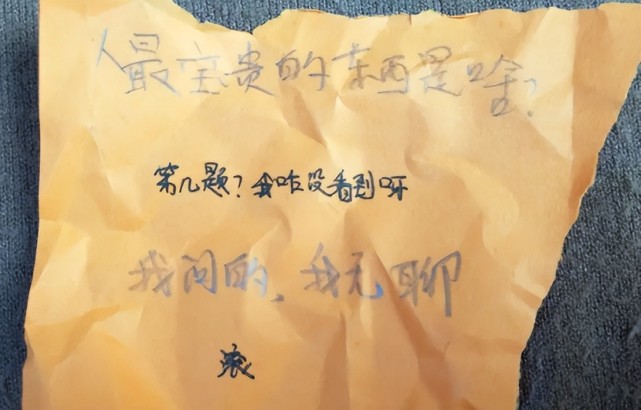 人最宝贵的东西是啥?
第几题?我咋没看到呀
我问的,我无聊
滚